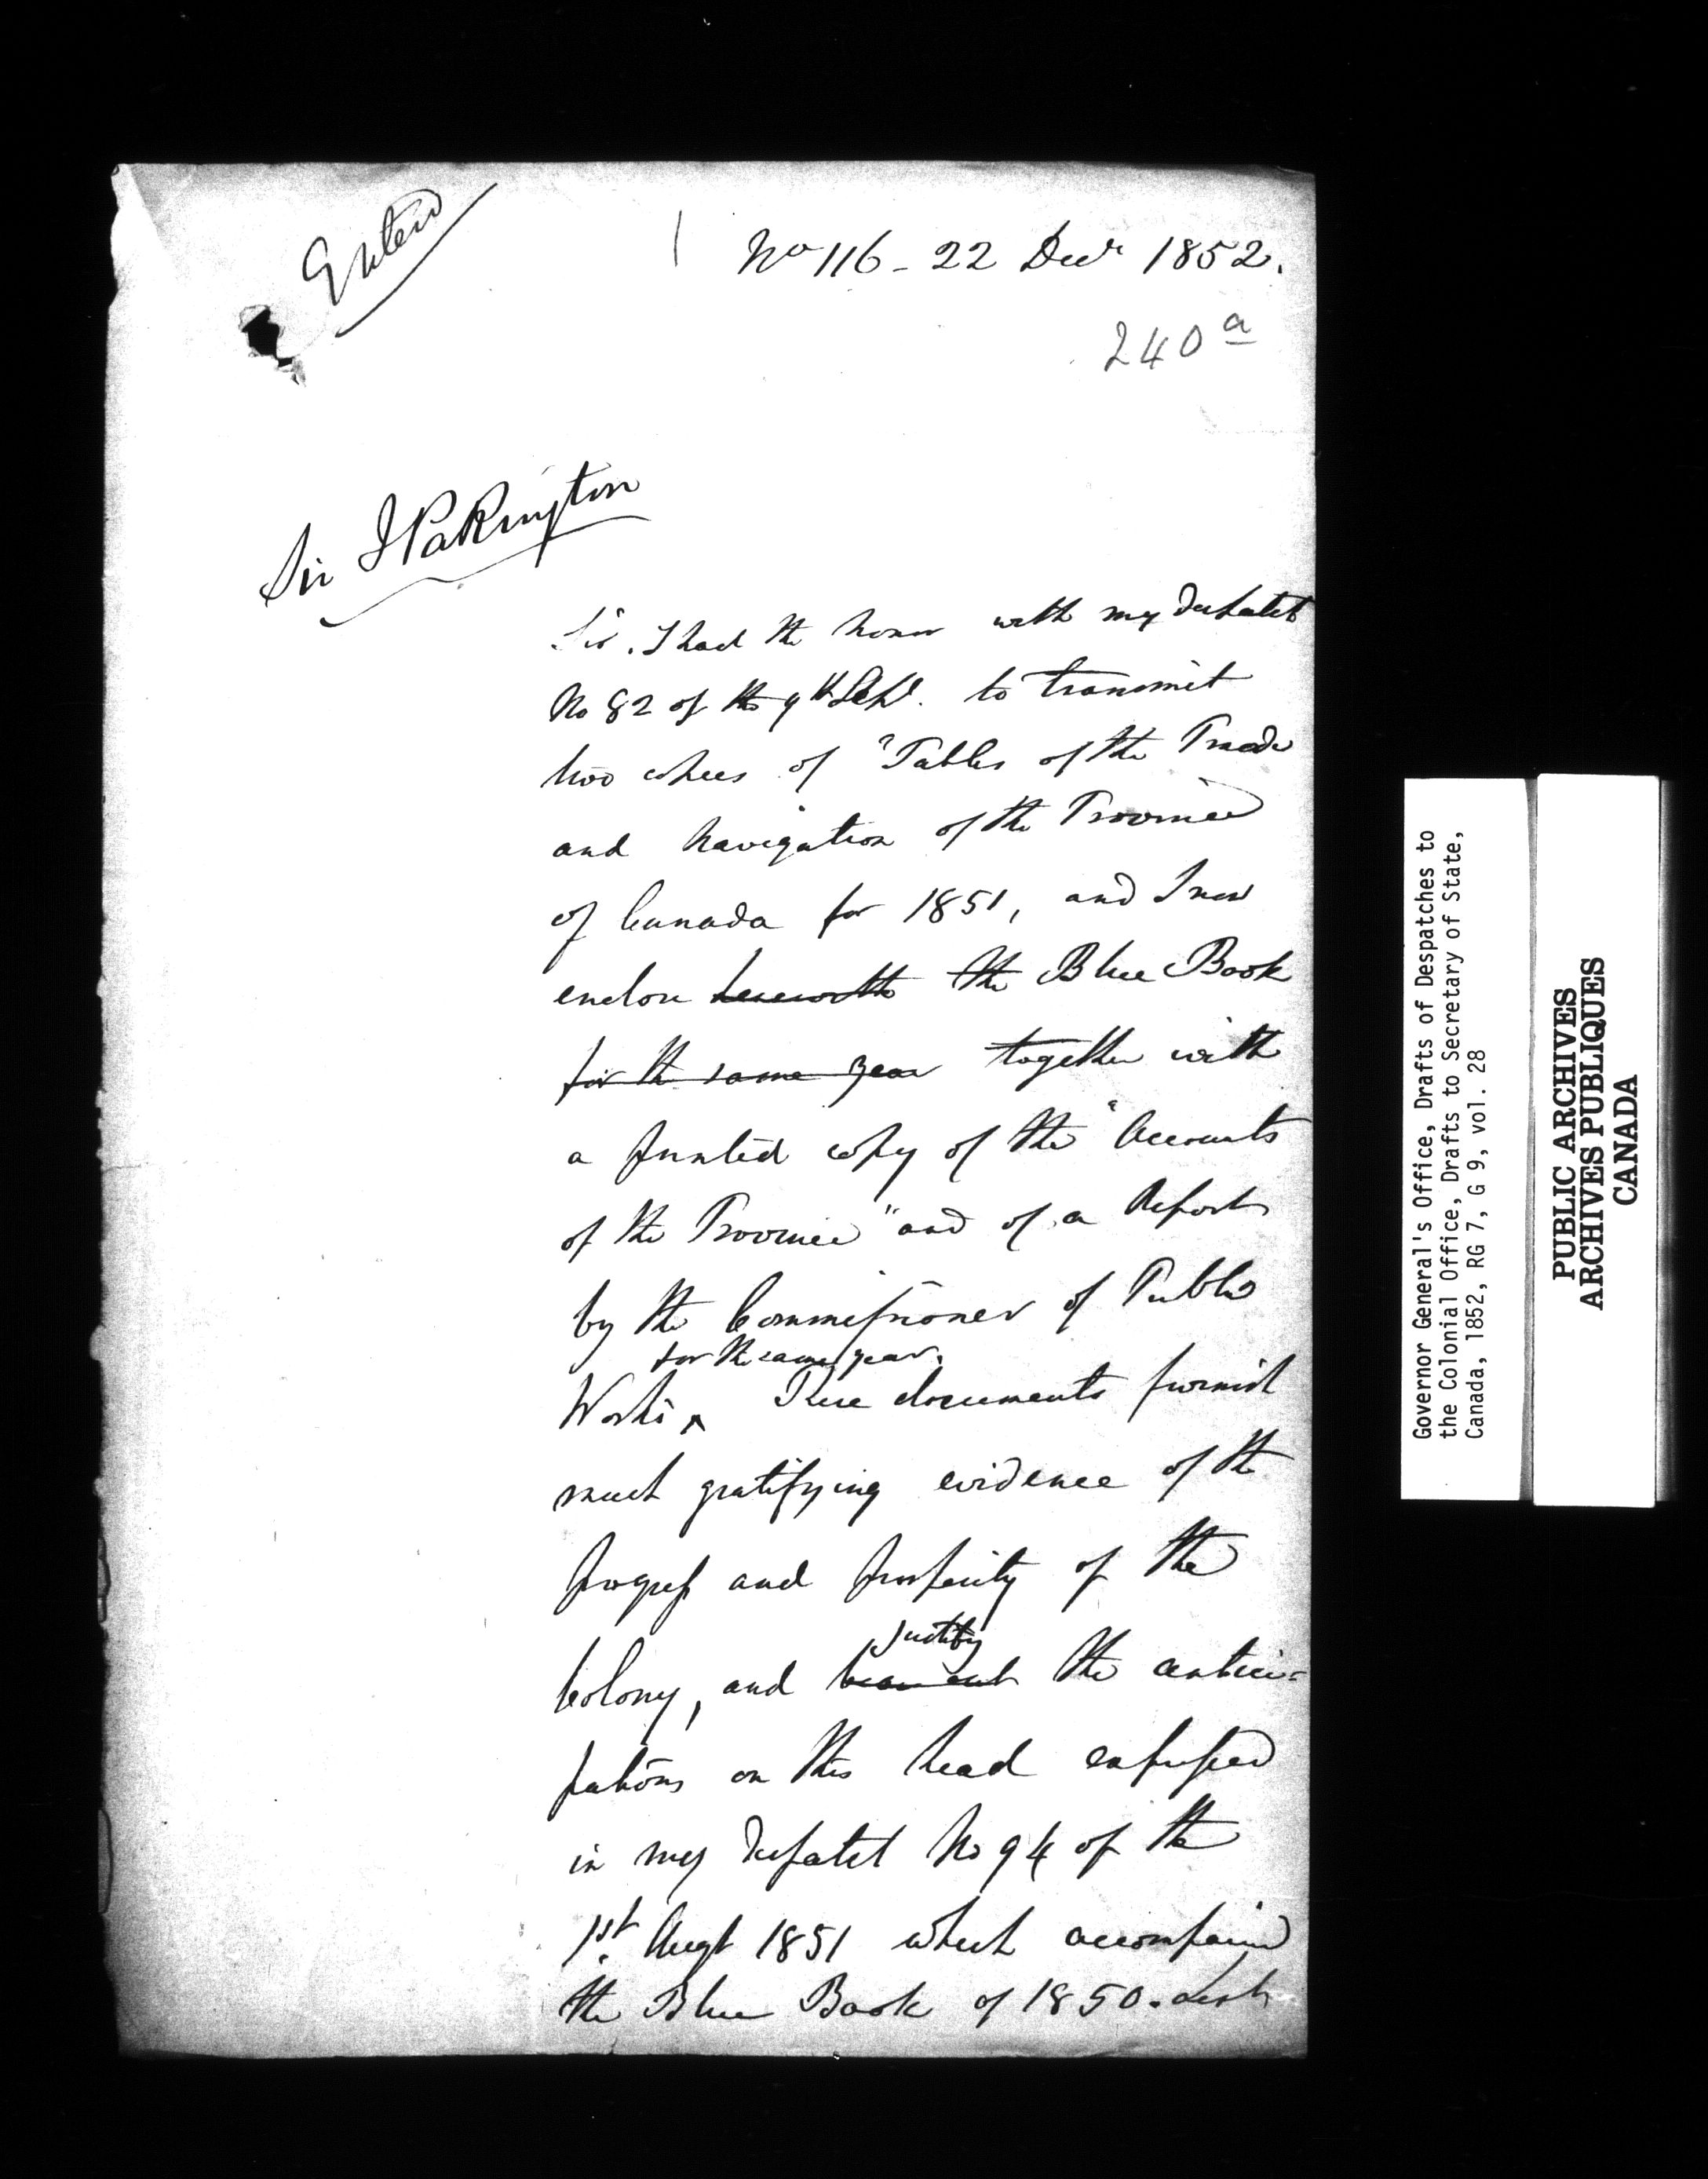 Entered
No 116 - 22 Decr 1852.
240 a
Sir J Pakington
Sir, I had the honor with my Despatch
No 82 of the 9th Sept. to transmit
two copies of "Tables of the Trade
and Navigation of the Province
of Canada for 1851, and I now
enclose herewith the Blue Book
for the same year together with
a printed copy of the "Accounts
of the Province" and of a Report
by the Commissioner of Public
for the same year.
Works These documents furnish
much gratifying evidence of the
progress and prosperity of the
justify
Colony, and bear out the antici=
pations on this head expressed
in my Despatch No 94 of the
1st Augt 1851 which accompanied
the Blue Book of 1850.
Governor General's Office, Drafts of Despatches to
the Colonial Office, Drafts to Secretary of State,
Canada, 1852, RG 7, G 9, vol. 28
PUBLIC ARCHIVES
ARCHIVES PUBLIQUES
CANADA